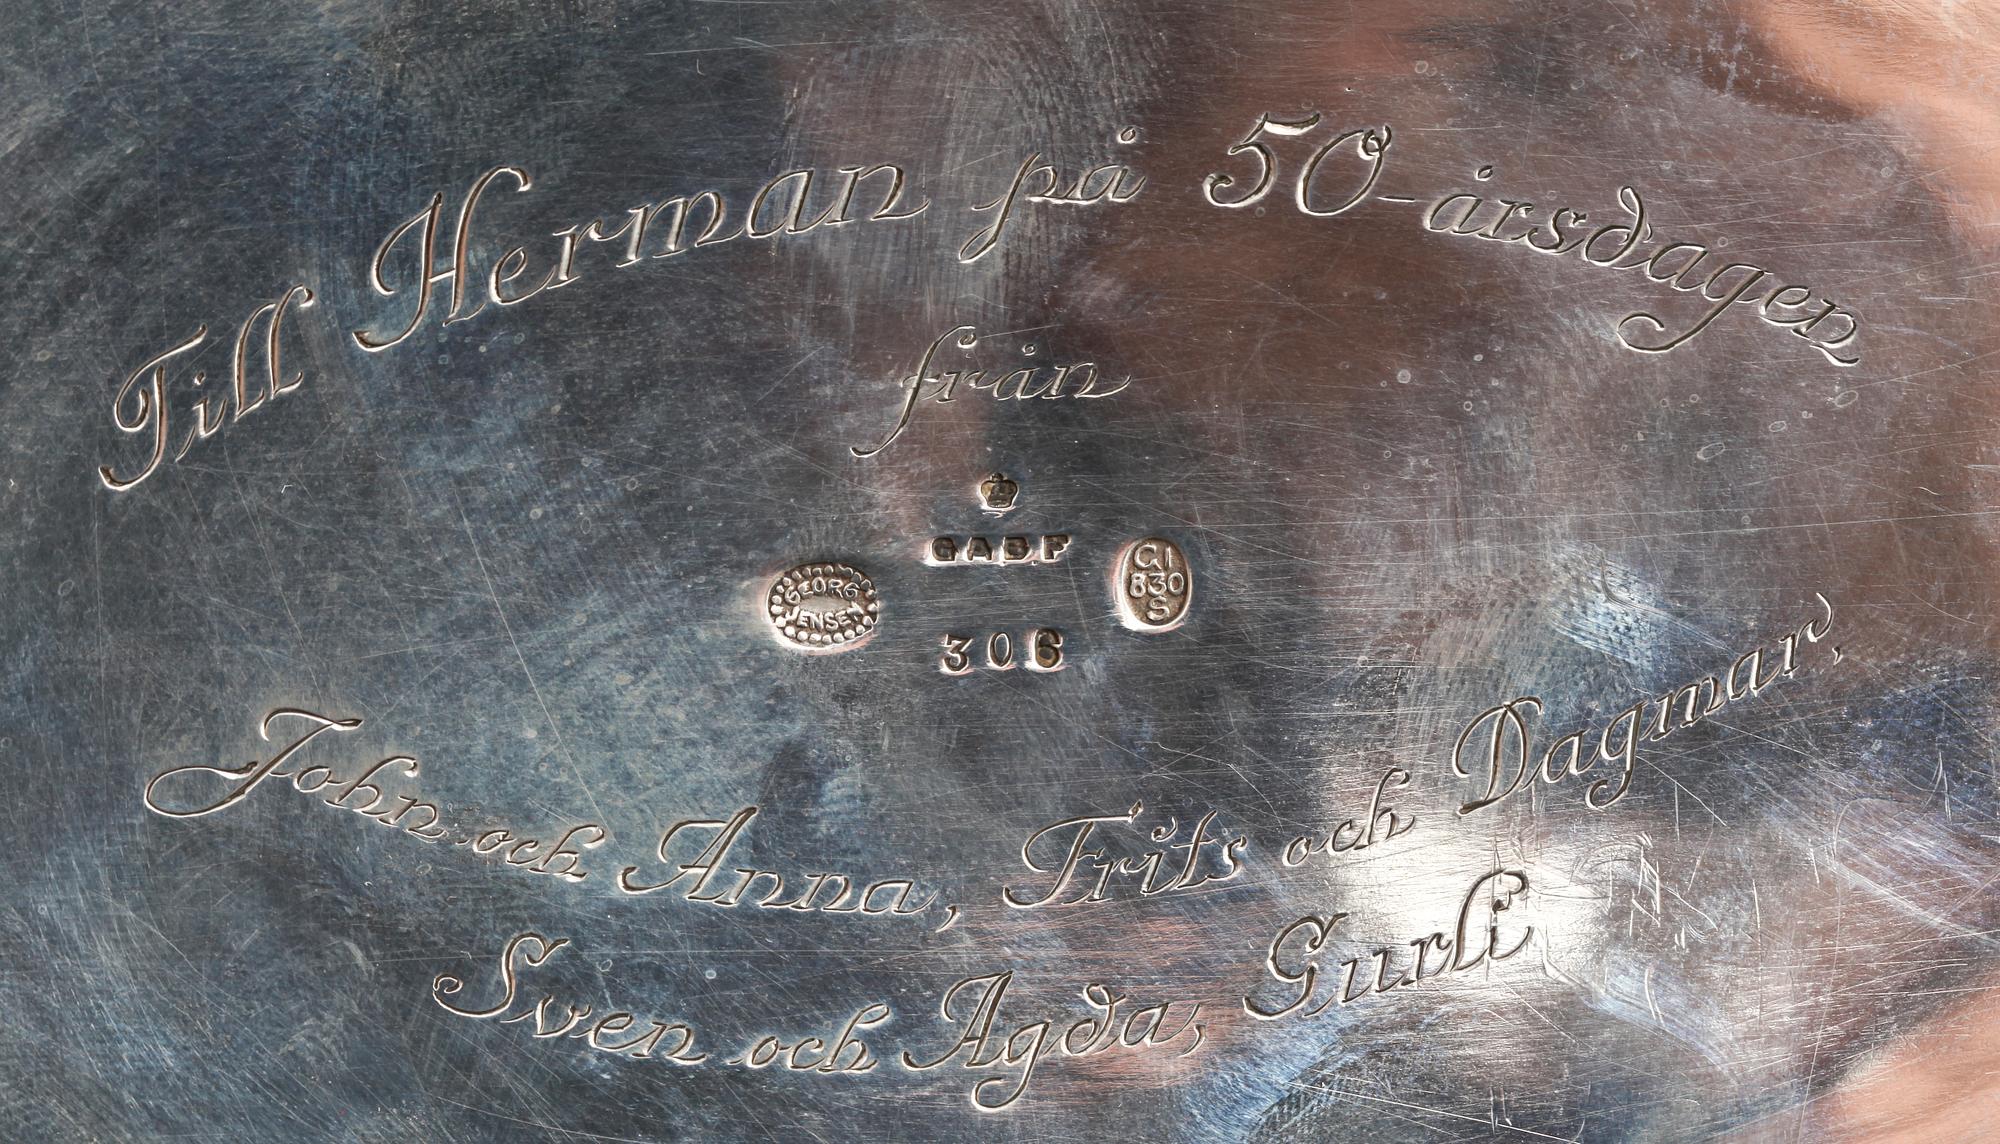 Till Herman på 50-årsdagen
från
GABF
GEORG
JENSEN
GI
830
S
306
John och Anna, Frits och Dagmar,
Sven och Agda, Gurli